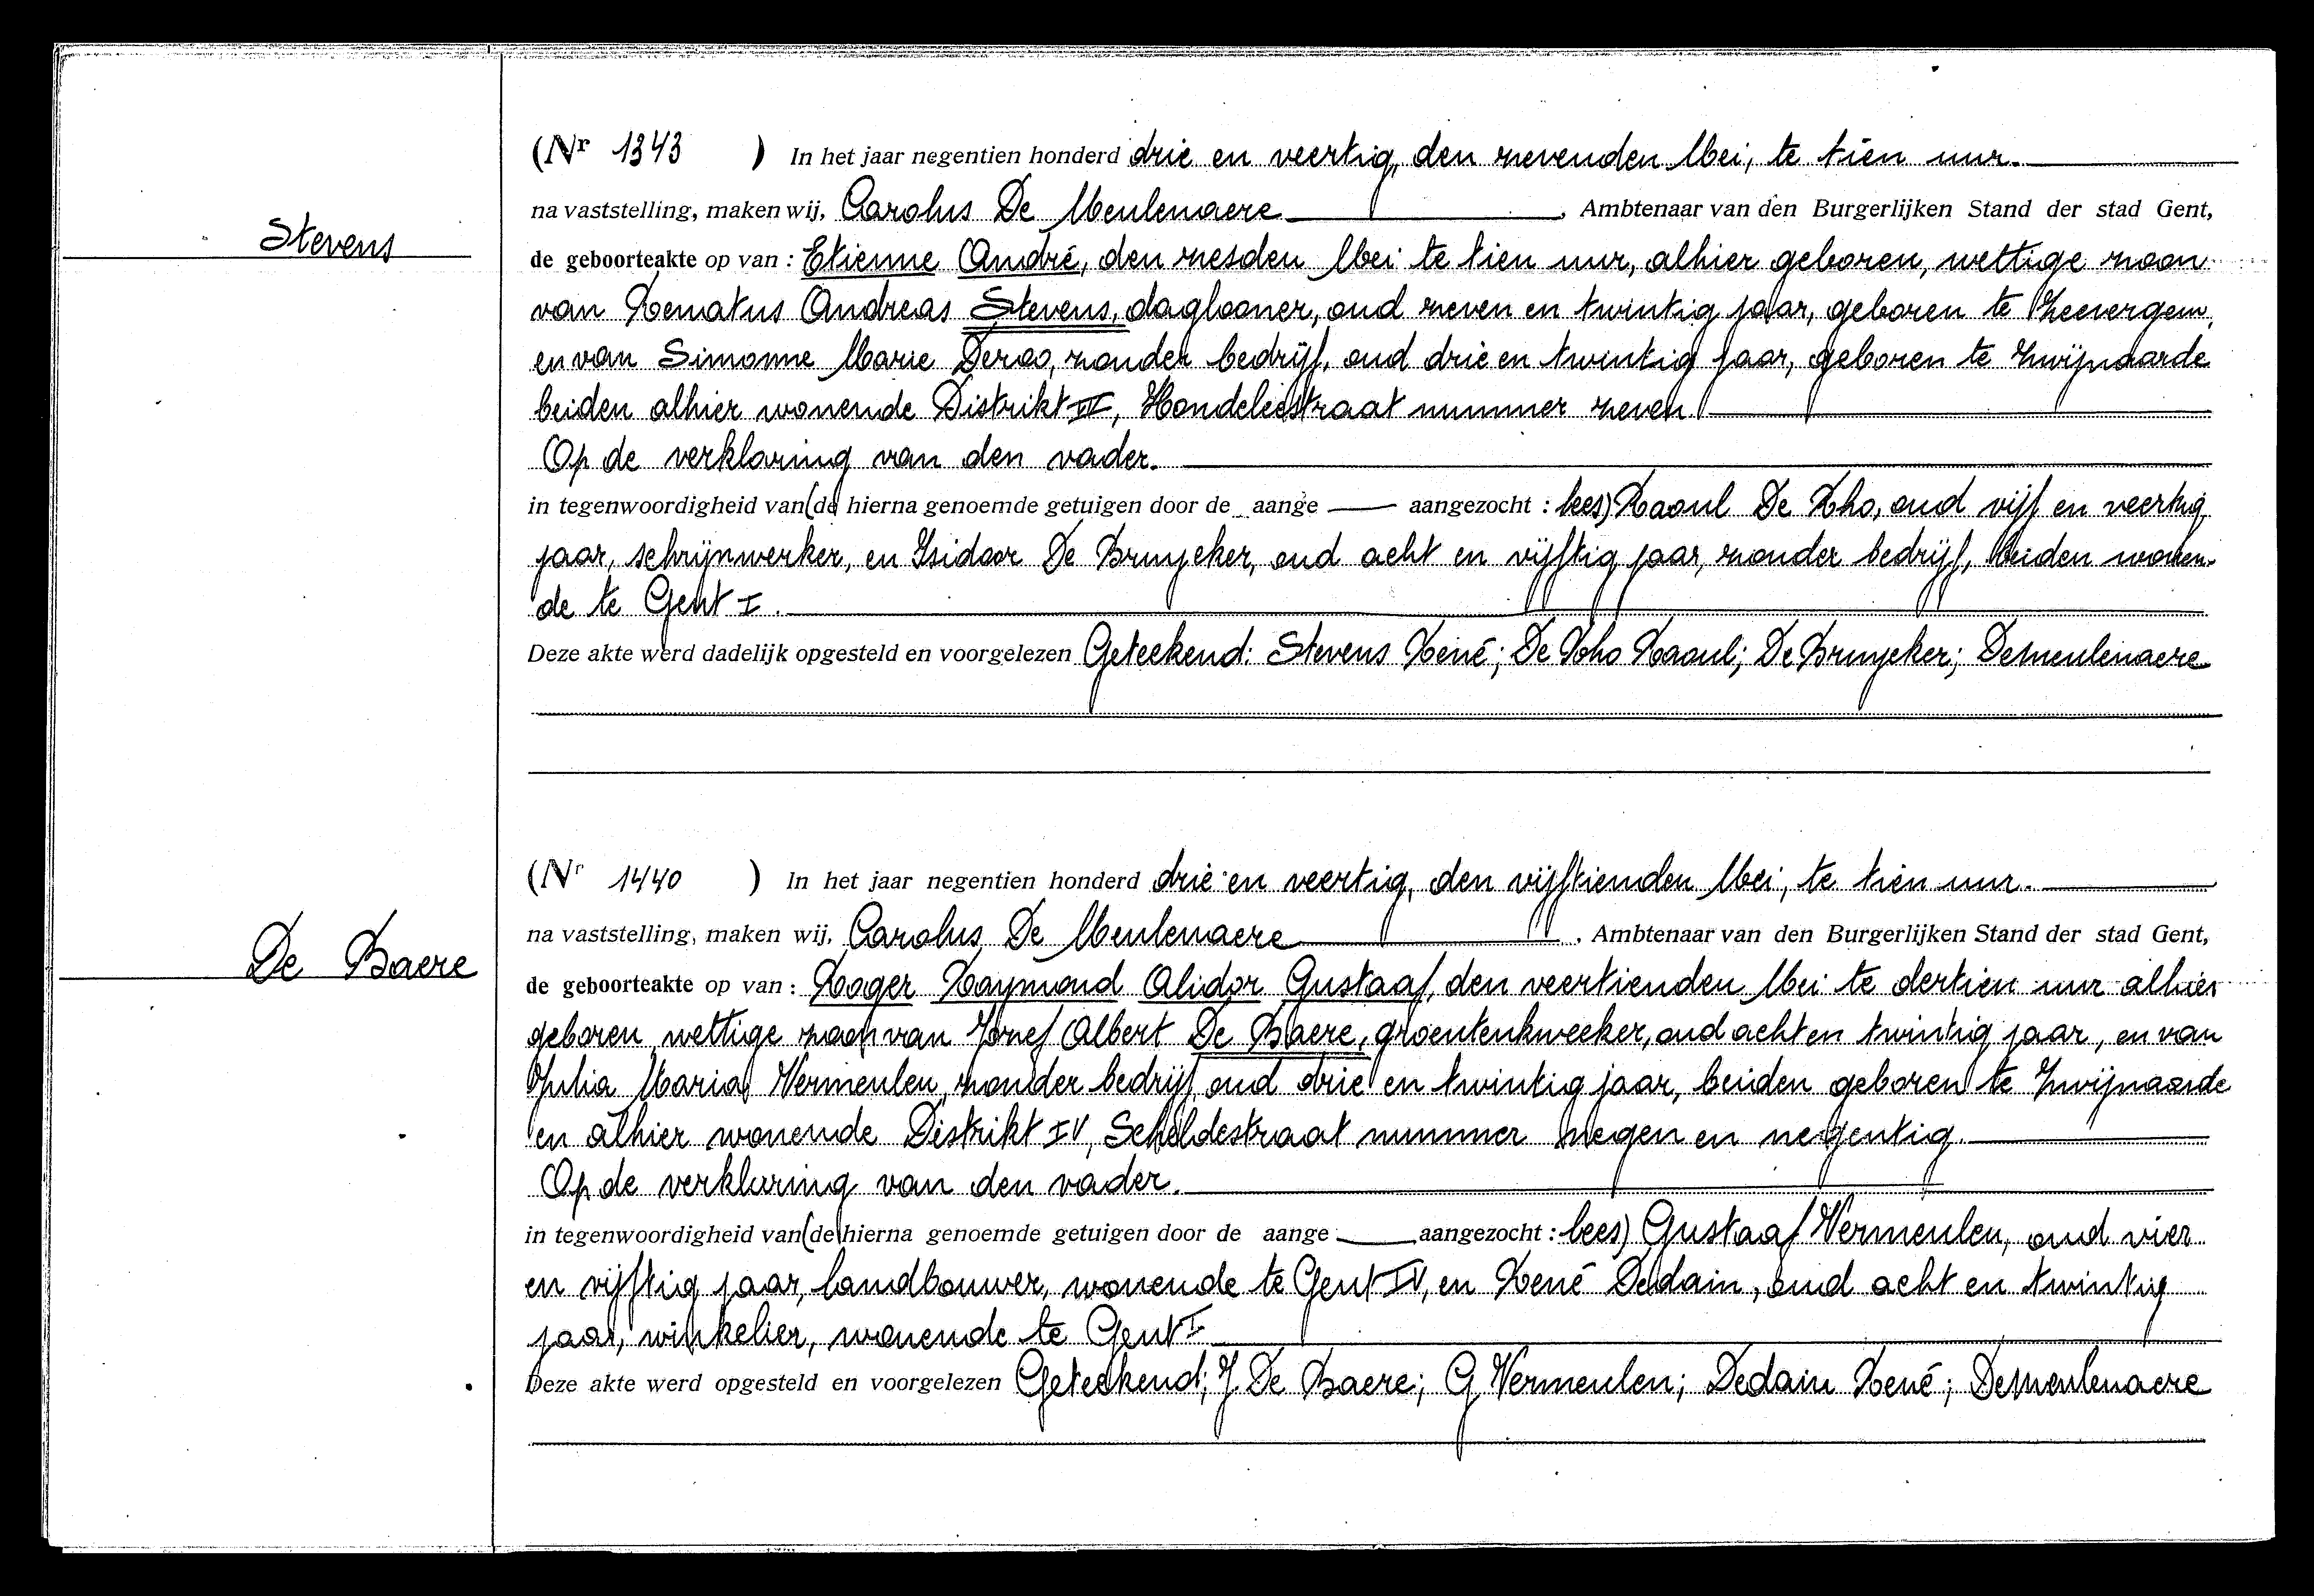 (Nr 1343 ) In het jaar negentien honderd drie en veertig, den zevenden Mei, te tien uur.
na vaststelling, maken wij, Carolus De Meulenaere, Ambtenaar van den Burgerlijken Stand der stad Gent,
Stevens
de geboorteakte op van : Etienne André, den zesden Mei te tien uur, alhier geboren, wettige zoon
van Renatus Andreas Stevens, daglooner, oud zeven en twintig jaar, geboren te Zeevergem,
en van Simonne Marie zonder bedrijf, oud drie en twintig jaar, geboren te Zwijnaarde
beiden alhier wonende Distrikt nummer zeven
Op de verklaring van den vader.
in tegenwoordigheid van (de hierna genoemde getuigen door de aange — aangezocht : lees) Raoul De Rho, oud vijf en veertig
jaar, schrijnwerker, en Isidoor De Bruycker, oud acht en vijftig jaar, zonder bedrijf, beiden wonen-
de te Gent I.
Deze akte werd dadelijk opgesteld en voorgelezen Geteekend: Stevens René; De Rho Raoul; De Bruycker; Demeulenaere
(Nr 1440 ) In het jaar negentien honderd drie en veertig, den vijftienden Mei, te tien uur.
na vaststelling, maken wij, Carolus De Meulenaere, Ambtenaar van den Burgerlijken Stand der stad Gent,
De Baere
de geboorteakte op van : Roger Raymond Alidor Gustaaf, den veertienden Mei te dertien uur alhier
geboren, wettige zoon van Jozef Albert De Baere, groentenkweeker, oud acht en twintig jaar, en van
Julia Maria Vermeulen, zonder bedrijf, oud drie en twintig jaar, beiden geboren te Zwijnaarde
en alhier wonende Distrikt IV, Scheldestraat nummer negen en negentig.
Op de verklaring van den vader.
in tegenwoordigheid van (de hierna genoemde getuigen door de aange — aangezocht : lees) Gustaaf Vermeulen, oud vier
en vijftig jaar, landbouwer, wonende te Gent IV, en René Dedain, oud acht en twintig
jaar, winkelier, wonende te Gent I
Deze akte werd opgesteld en voorgelezen Geteekend; J De Baere; G Vermeulen; Dedain René; Demeulenaere